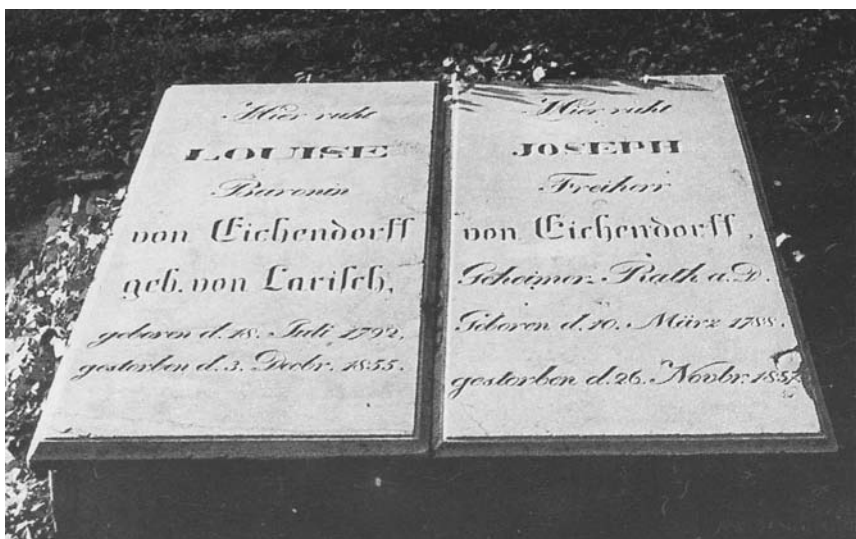 Hier ruht
LOUISE
Baronin
von Eichendorff
geb. von Larisch,
geboren d. 18. Juli 1792,
gestorben d. 3. Decbr. 1855.
Hier ruht
JOSEPH
Freiherr
von Eichendorff,
Geheimer Rath a. D.
Geboren d. 10. März 1788.
gestorben d. 26. Novbr. 1857.